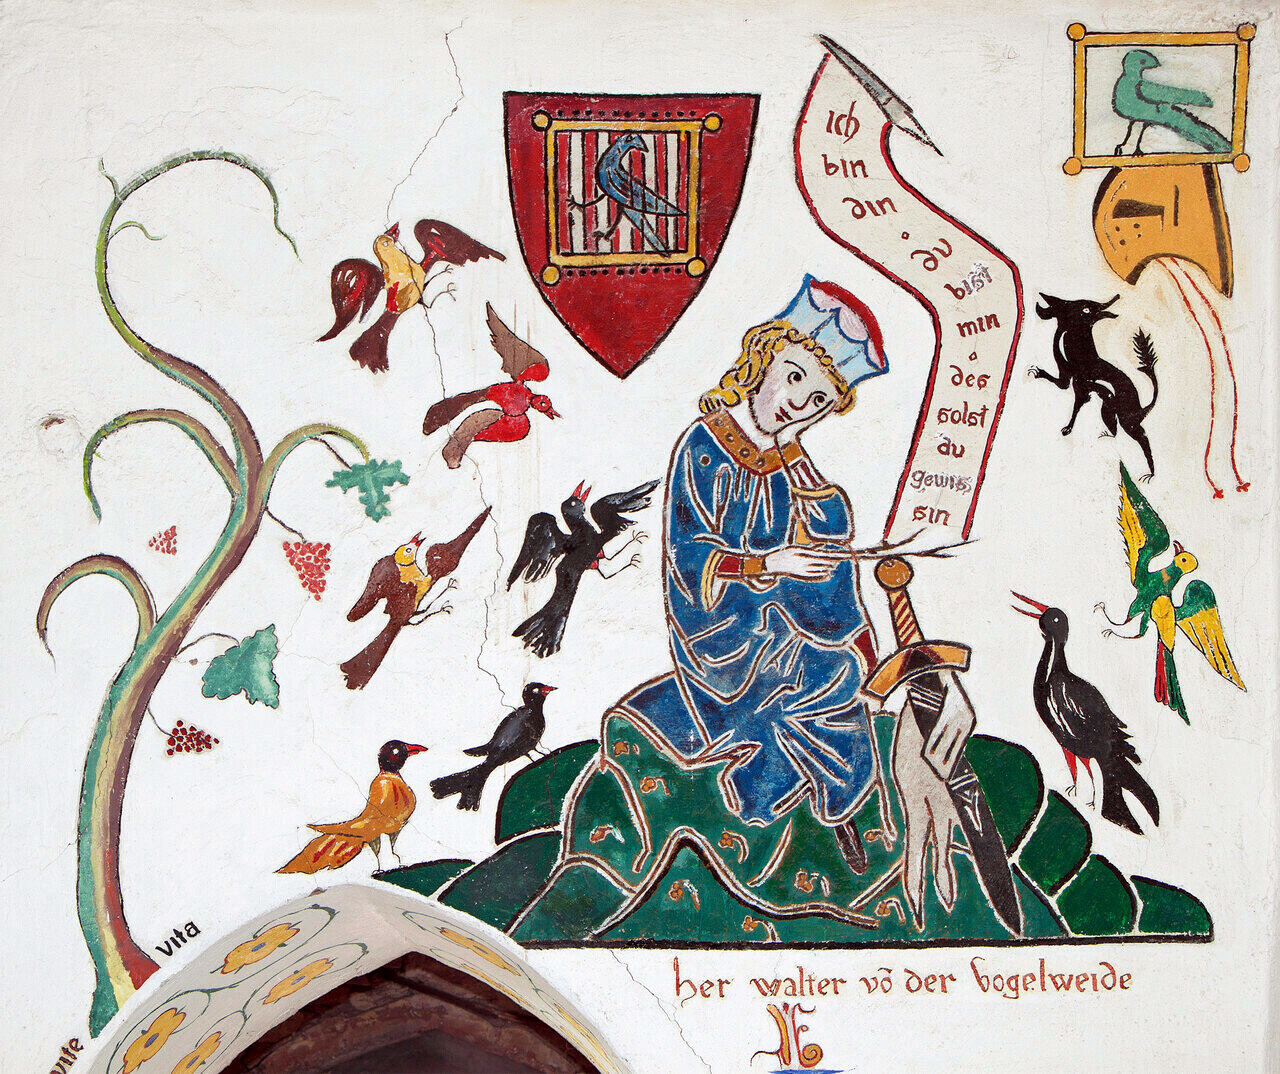 ich
bin
din °
du
bist
min °
des
solst
du
gewis
sin
her walter vō der Vogelweide
vita
vite